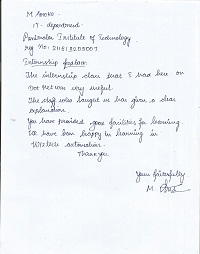 M. Anoko
IT - department
Panimalar Institute of Technology
Reg No: 211513205007
Internship feedback
The internship class that I had here on
Dot Net was very useful.
The staff who taught us has given a clear
explanation.
You have provided good facilities for learning.
We have been happy in learning in
Wizitech automation.
Thank you
Yours faithfully
M.